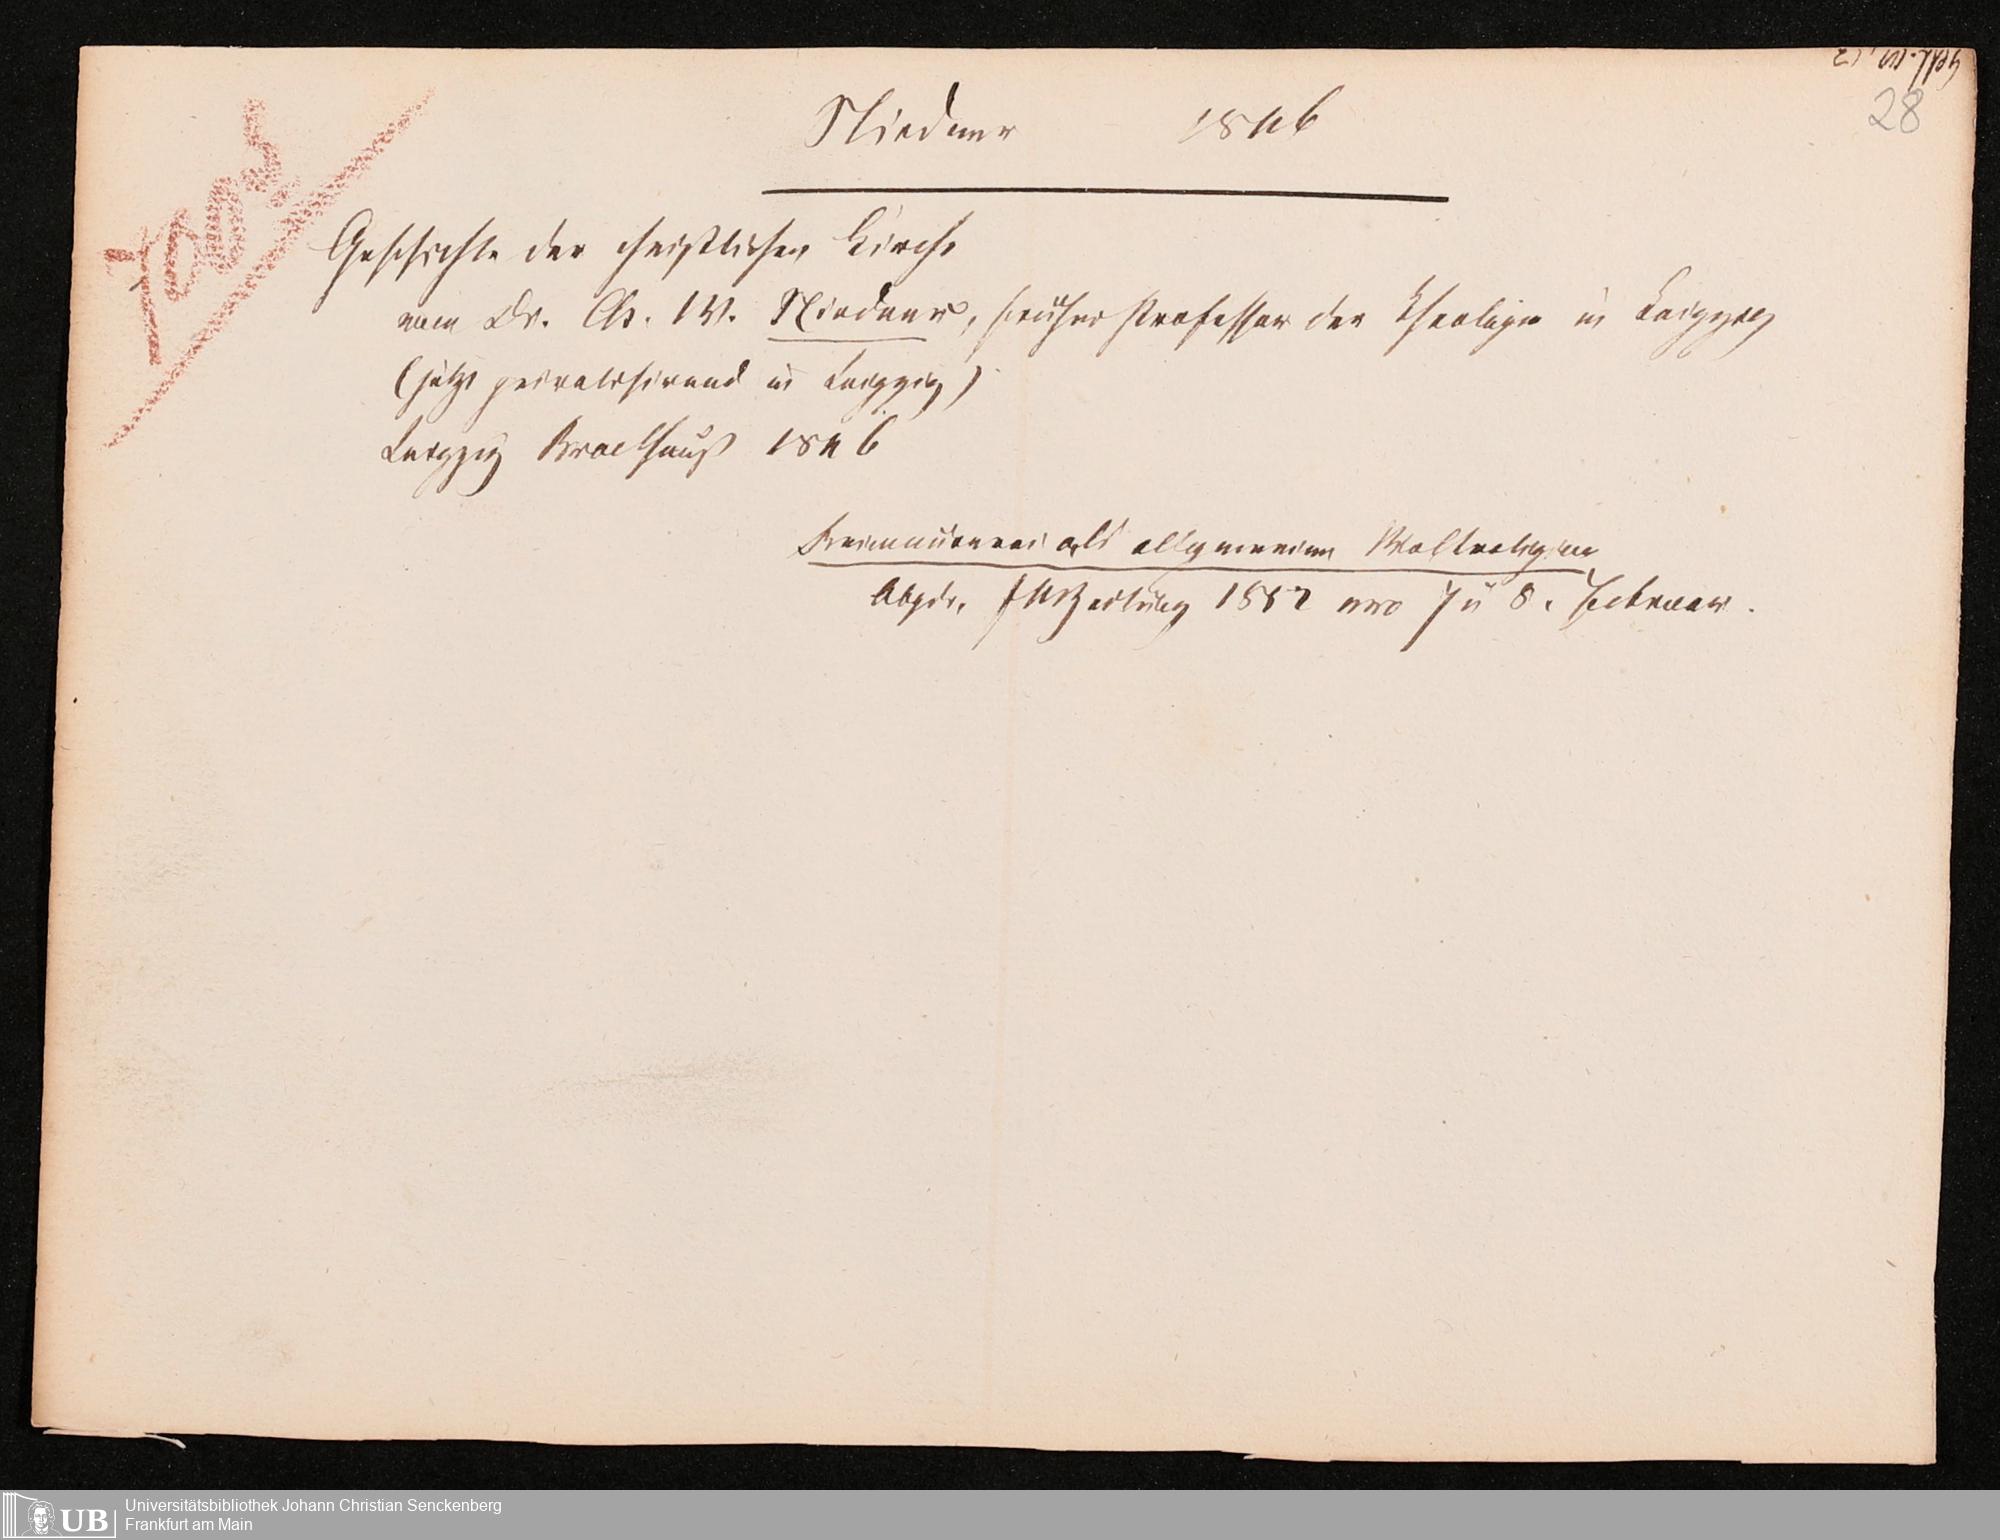 28
Niedner 1846
Geschichte der christlichen Kirche
von Dr. Ch. W. Niedner, früher Professor der Theologie in Leipzig
(jetzt privatisirend in Leipzig)
Leipzig Brockhauß 1846
Freimaurerei als allgemeine Weltreligion
Abgdr. FMZeitung 1852 nro 7 u 8. Februar.
Universitätsbibliothek Johann Christian Senckenberg
Frankfurt am Main
UB